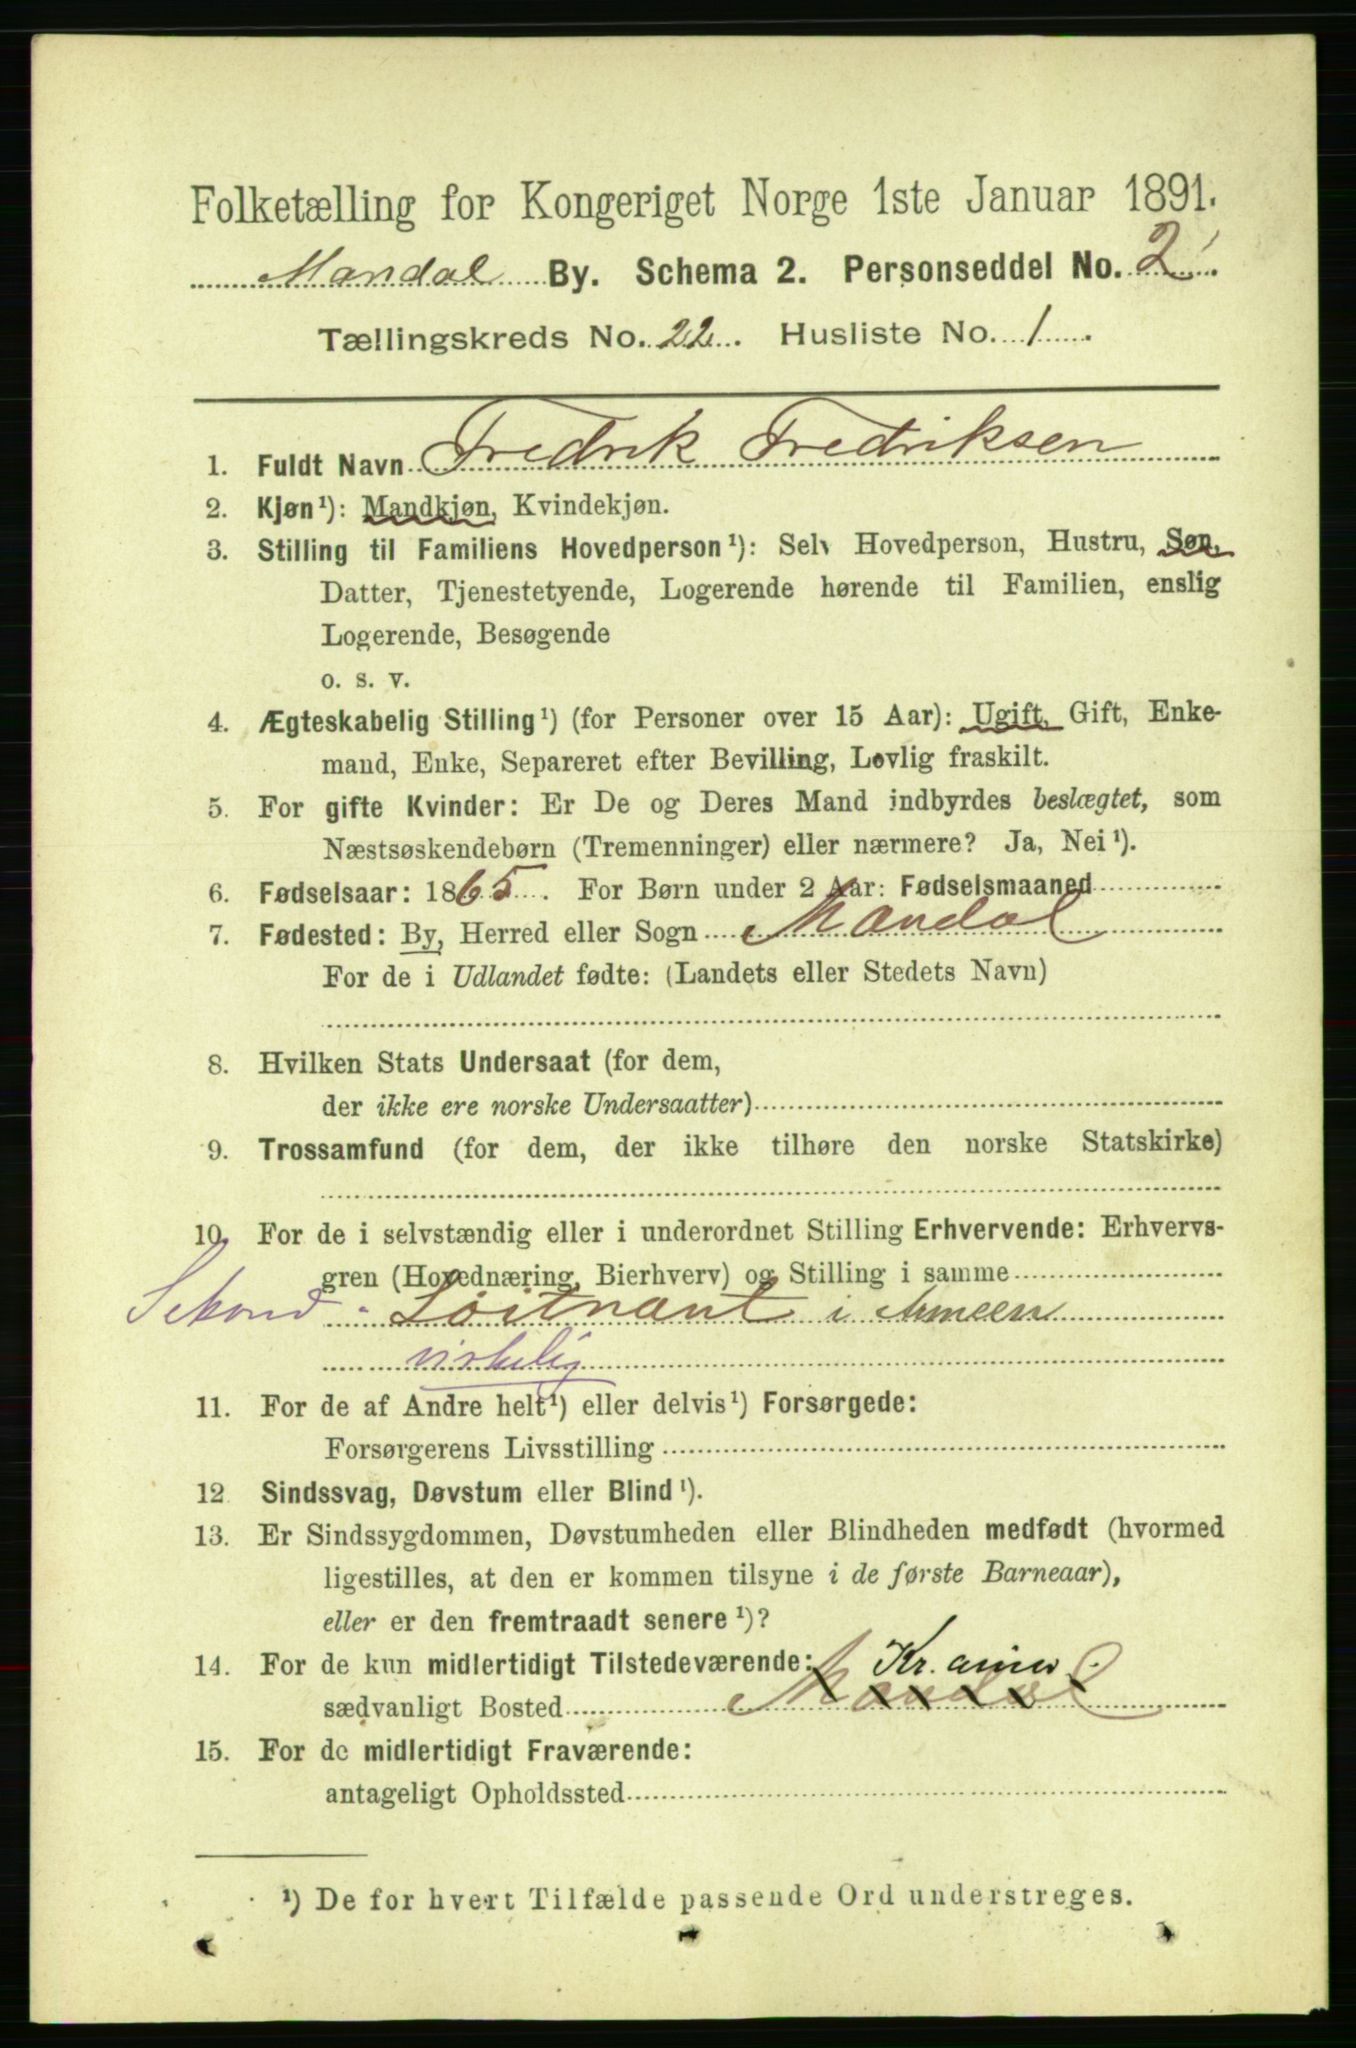 Folketælling for Kongeriget Norge 1ste Januar 1891.
Mandal By. Schema 2. Personseddel No. 2.
Tællingskreds No. 22. Husliste No. 1.
1. Fuldt Navn Fredrik Fredriksen
2. Kjøn¹): Mandkjøn, Kvindekjøn.
3. Stilling til Familiens Hovedperson¹): Selv Hovedperson, Hustru, Søn,
Datter, Tjenestetyende, Logerende hørende til Familien, enslig
Logerende, Besøgende
o. s. v.
4. Ægteskabelig Stilling¹) (for Personer over 15 Aar): Ugift, Gift, Enke-
mand, Enke, Separeret efter Bevilling, Lovlig fraskilt.
5. For gifte Kvinder: Er De og Deres Mand indbyrdes beslægtet, som
Næstsøskendebørn (Tremenninger) eller nærmere? Ja, Nei¹).
6. Fødselsaar: 1865. For Børn under 2 Aar: Fødselsmaaned
7. Fødested: By, Herred eller Sogn Mandal
For de i Udlandet fødte: (Landets eller Stedets Navn)
8. Hvilken Stats Undersaat (for dem,
der ikke ere norske Undersaatter)
9. Trossamfund (for dem, der ikke tilhøre den norske Statskirke)
10. For de i selvstændig eller i underordnet Stilling Erhvervende: Erhvervs-
gren (Hovednæring, Bierhverv) og Stilling i samme
Sekond - Løitnant i Armeen
virkelig
11. For de af Andre helt¹) eller delvis¹) Forsørgede:
Forsørgerens Livsstilling
12 Sindssvag, Døvstum eller Blind¹).
13. Er Sindssygdommen, Døvstumheden eller Blindheden medfødt (hvormed
ligestilles, at den er kommen tilsyne i de første Barneaar),
eller er den fremtraadt senere¹)?
14. For de kun midlertidigt Tilstedeværende: Kr.
sædvanligt Bosted Mandal
15. For de midlertidigt Fraværende:
antageligt Opholdssted
¹) De for hvert Tilfælde passende Ord understreges.